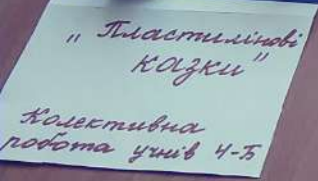 „Пластилінові
казки"
Колективна
робота учнів 4-Б